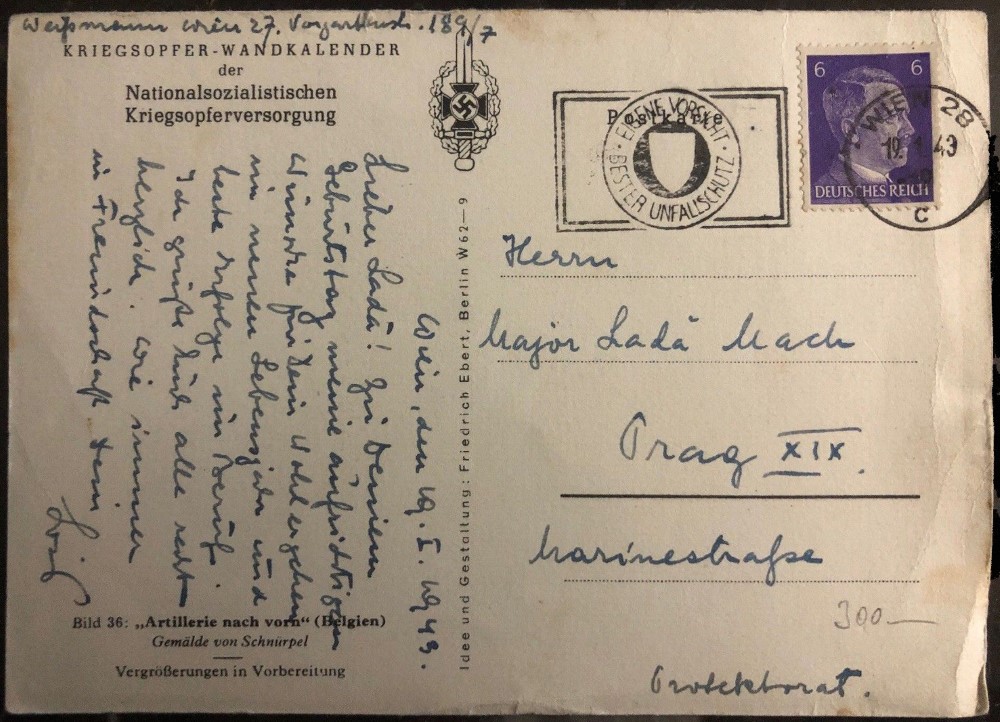 Weißmann Wien 27. Vorgartenstr. 189/7
KRIEGSOPFER-WANDKALENDER
der
Nationalsozialistischen
Kriegsopferversorgung
Wien, den 19. I. 1943.
Lieber Ladă! Zu Deinem
Geburtstag meine aufrichtigen
Wünsche für Dein Wohlergehen
im neuen Lebensjahr und
beste Erfolge im Beruf.
Ich grüße Euch alle recht
herzlich. Wie immer
in Freundschaft Dein
Bild 36: „Artillerie nach vorn“ (Belgien)
Gemälde von Schnürpel
Vergrößerungen in Vorbereitung
Idee und Gestaltung: Friedrich Ebert, Berlin W 62—9
Postkarte
· EIGENE VORSICHT ·
BESTER UNFALLSCHUTZ
6 6
DEUTSCHES REICH
WIEN 28
19. 1. 43
c
Herrn
Major Ladă Mach
Prag XIX.
Marinestraße
300—
Protektorat.